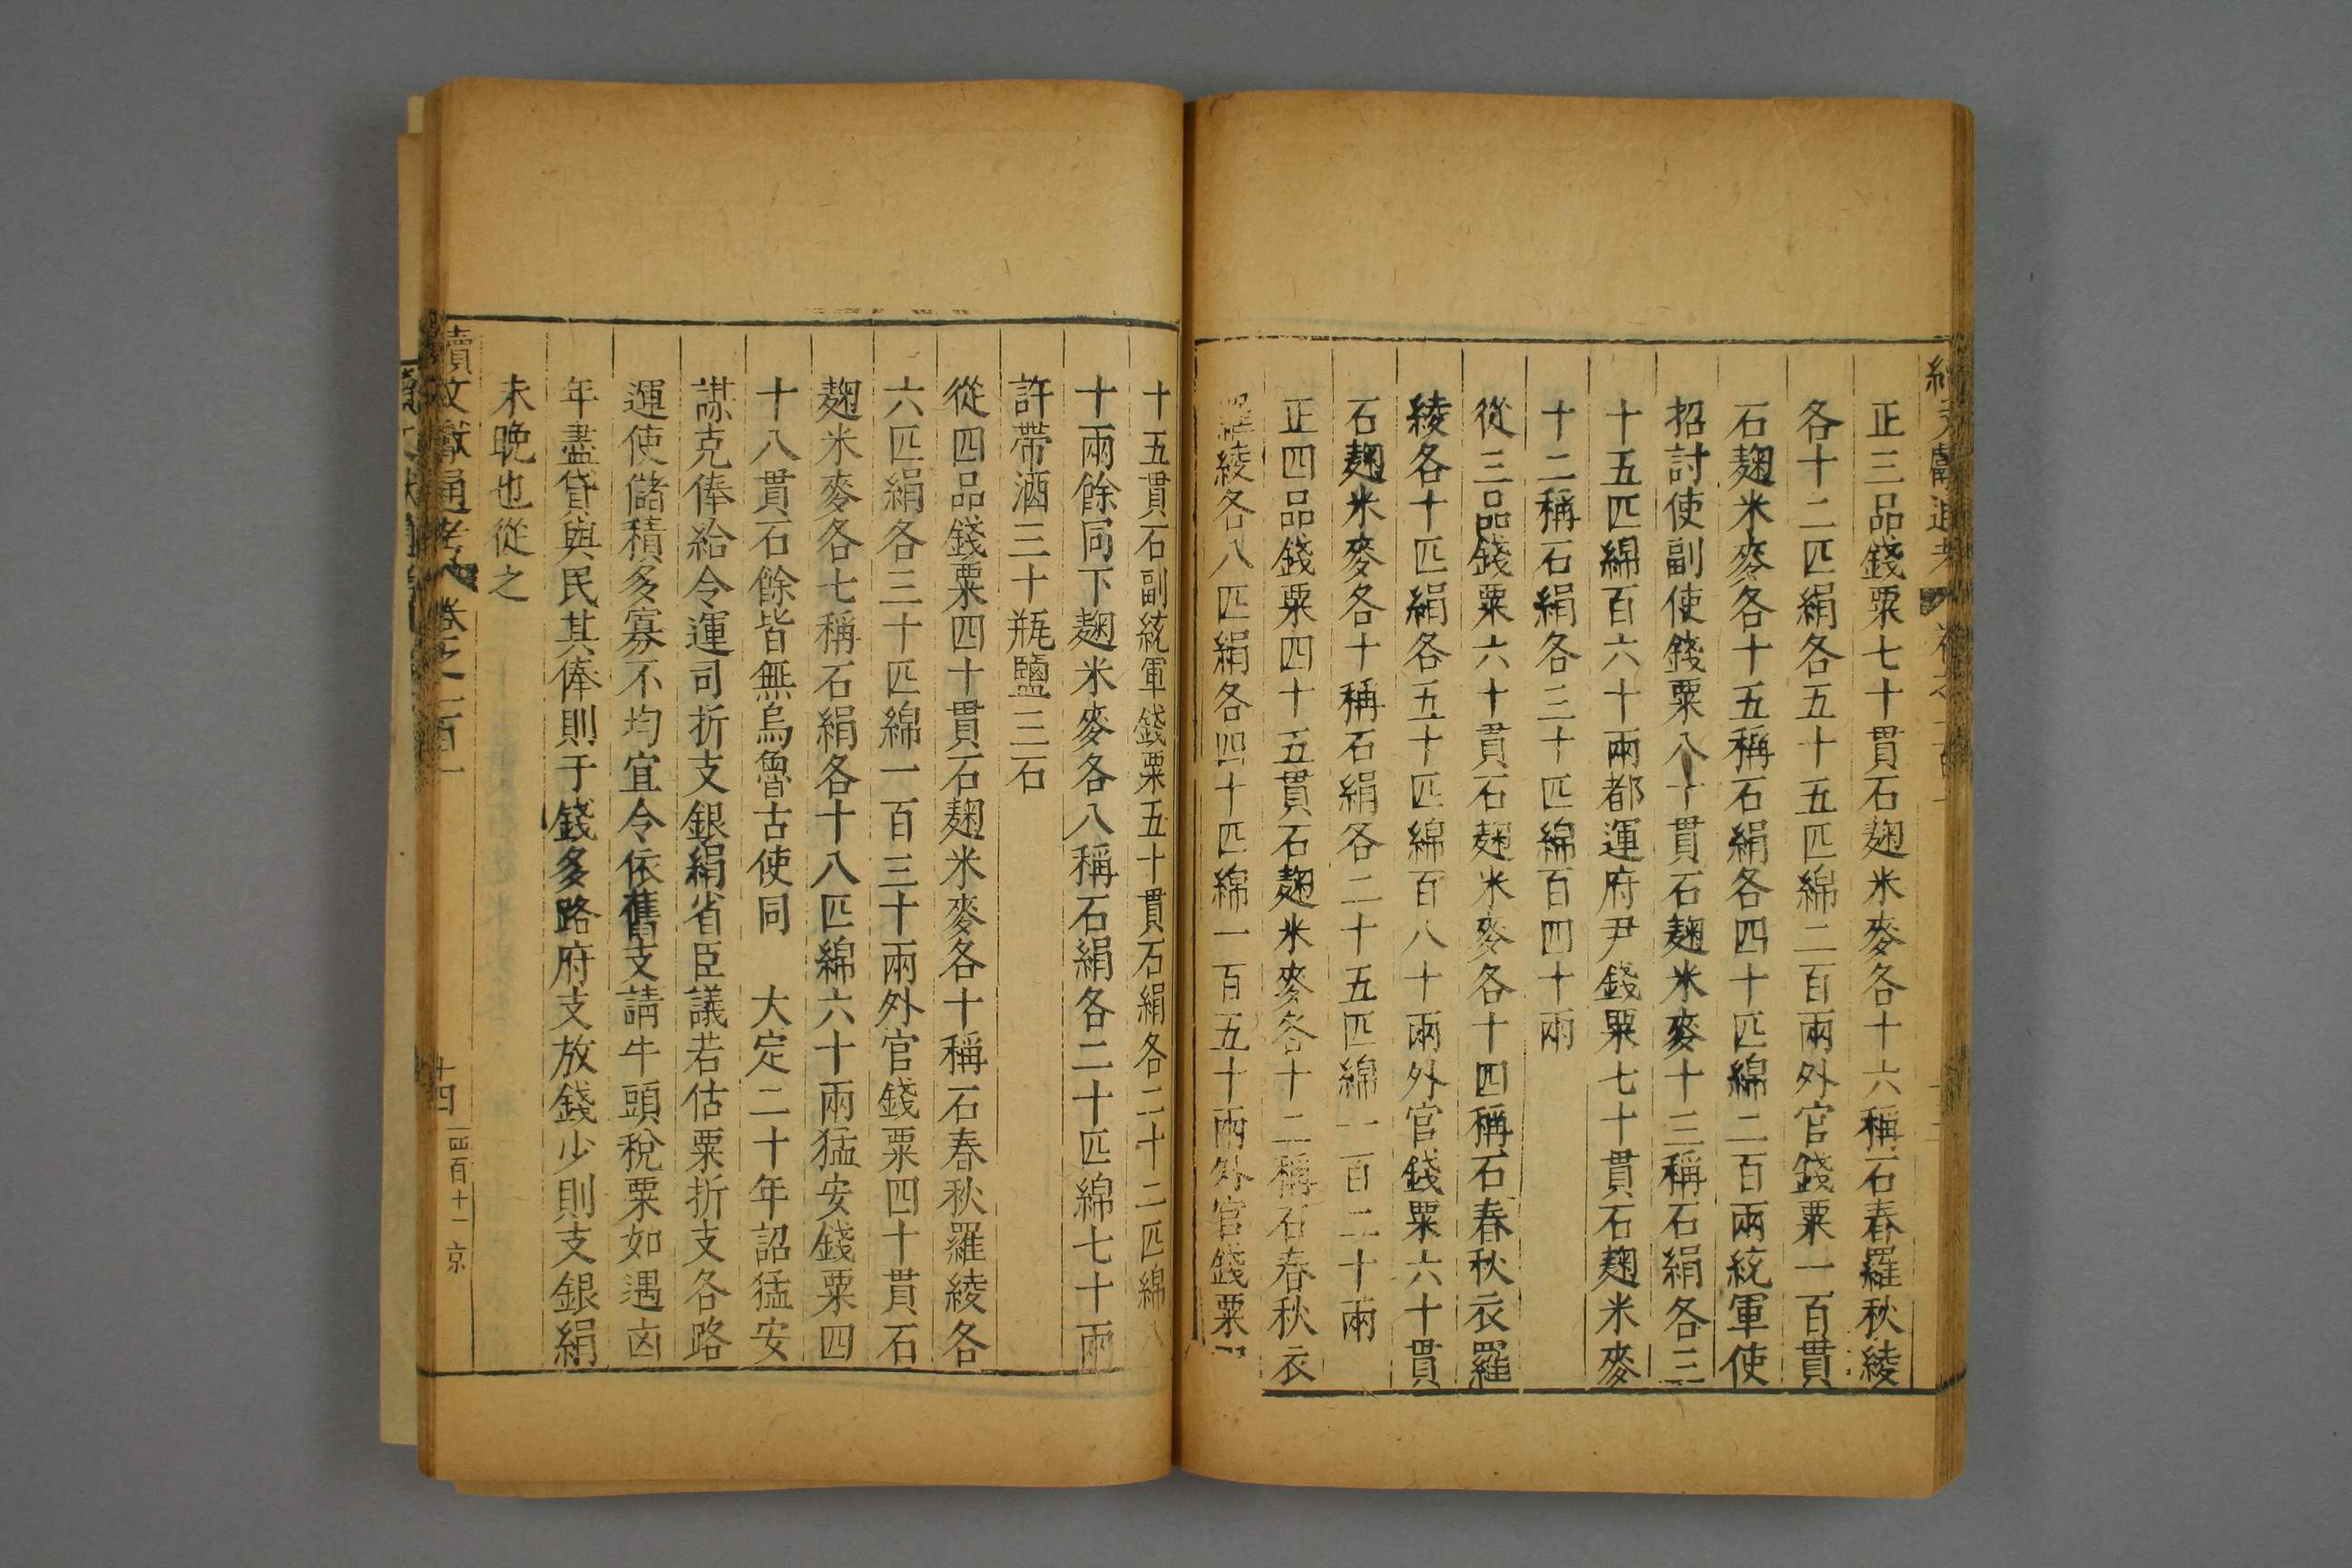 正三品錢粟七十貫石麹米麥各十六稱石春羅秋綾
各十二匹絹各五十五匹綿二百兩外官錢粟一百貫
石麹米麥各十五稱石絹各四十匹綿二百兩統軍使
招討使副使錢粟八十貫石麹米麥十三稱石絹各三
十五匹綿百六十兩都運府尹錢粟七十貫石麹米麥
十二稱石絹各三十匹綿百四十兩
從三品錢粟六十貫石麹米麥各十四稱石春秋衣羅
綾各十匹絹各五十匹綿百八十兩外官錢粟六十貫
石麹米麥各十稱石絹各二十五匹綿一百二十兩
正四品錢粟四十五貫石麹米麥各十二稱石春秋衣
羅綾各八匹絹各四十匹綿一百五十兩外官錢粟四
十五貫石副統軍錢粟五十貫石絹各二十二匹綿八
十兩餘同下麹米麥各八稱石絹各二十匹綿七十兩
許帶酒三十瓶鹽三石
從四品錢粟四十貫石麹米麥各十稱石春秋羅綾各
六匹絹各三十匹綿一百三十兩外官錢粟四十貫石
麹米麥各七稱石絹各十八匹綿六十兩猛安錢粟四
十八貫石餘皆無烏魯古使同　大定二十年詔猛安
謀克俸給令運司折支銀絹省臣議若估粟折支各路
運使儲積多寡不均宜令依舊支請牛頭稅粟如遇凶
年盡貸與民其俸則于錢多路府支放錢少則支銀絹
未晚也從之
續文獻通考 卷之一百一 十四 四百十一 京